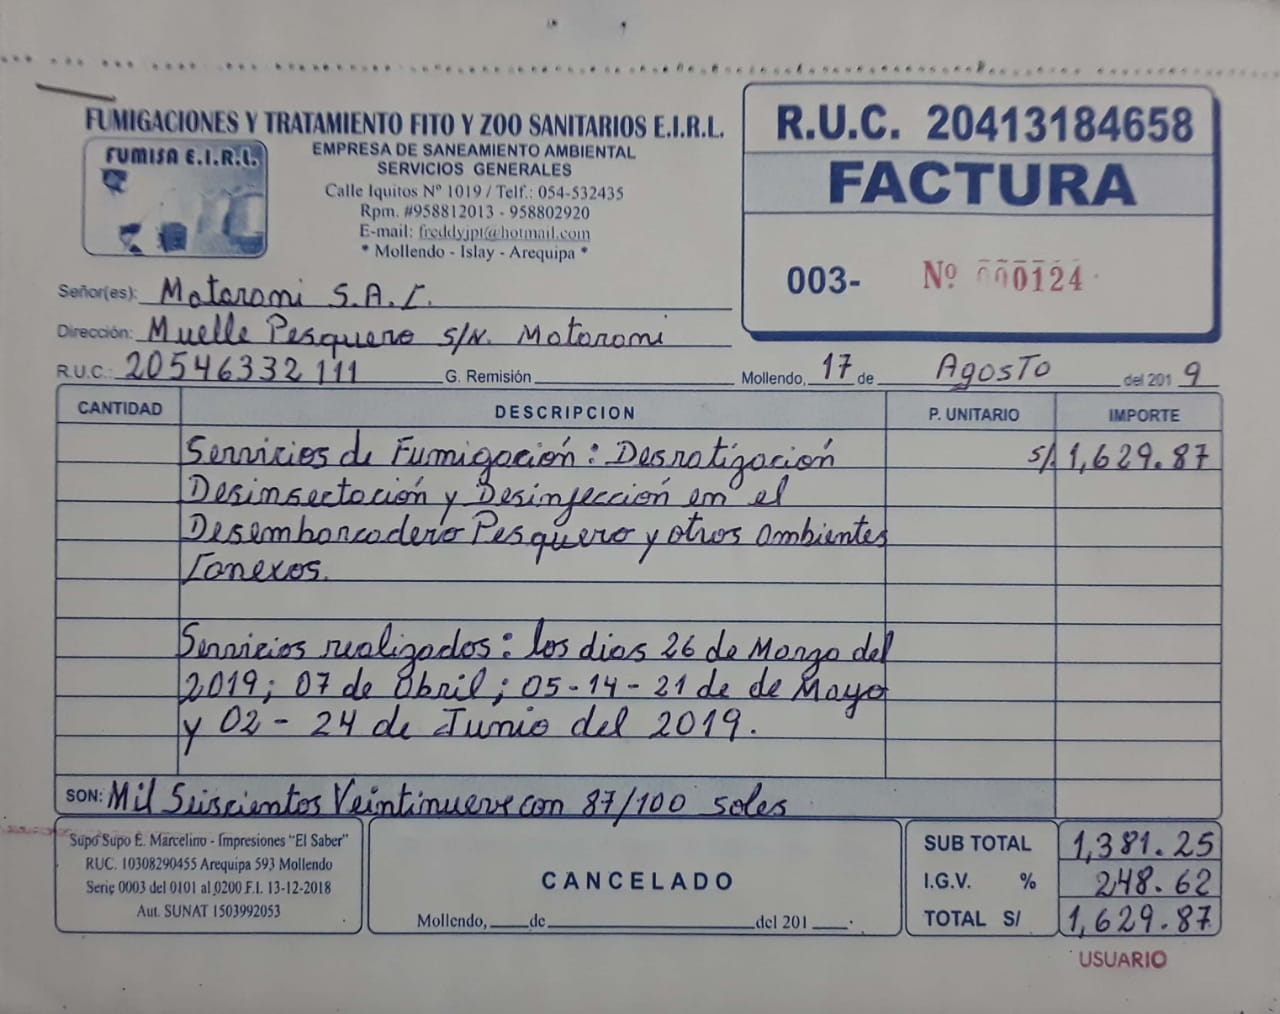 FUMIGACIONES Y TRATAMIENTO FITO Y ZOO SANITARIOS E.I.R.L.
FUMISA E.I.R.L.
EMPRESA DE SANEAMIENTO AMBIENTAL
SERVICIOS GENERALES
Calle Iquitos Nº 1019 / Telf.: 054-532435
Rpm. #958812013 - 958802920
E-mail: freddyjpt@hotmail.com
* Mollendo - Islay - Arequipa *
R.U.C. 20413184658
FACTURA
003- Nº 000124
Señor(es): Matarani S.A.C.
Dirección: Muelle Pesquero S/N. Matarani
R.U.C.: 20546332111 G. Remisión Mollendo, 17 de Agosto del 2019
CANTIDAD DESCRIPCION P. UNITARIO IMPORTE
Servicios de Fumigación: Desratización S/. 1,629.87
Desinsectación y Desinfección en el
Desembarcadero Pesquero y otros ambientes
Conexos.
Servicios realizados: los dias 26 de Marzo del
2019; 07 de Abril; 05-14-21 de de Mayo
y 02-24 de Junio del 2019.
SON: Mil Seiscientos Veintinueve con 87/100 soles
Supo Supo E. Marcelino - Impresiones "El Saber"
RUC. 10308290455 Arequipa 593 Mollendo
Serie 0003 del 0101 al 0200 F.I. 13-12-2018
Aut. SUNAT 1503992053
CANCELADO
Mollendo, de del 201
SUB TOTAL 1,381.25
I.G.V. % 248.62
TOTAL S/ 1,629.87
USUARIO